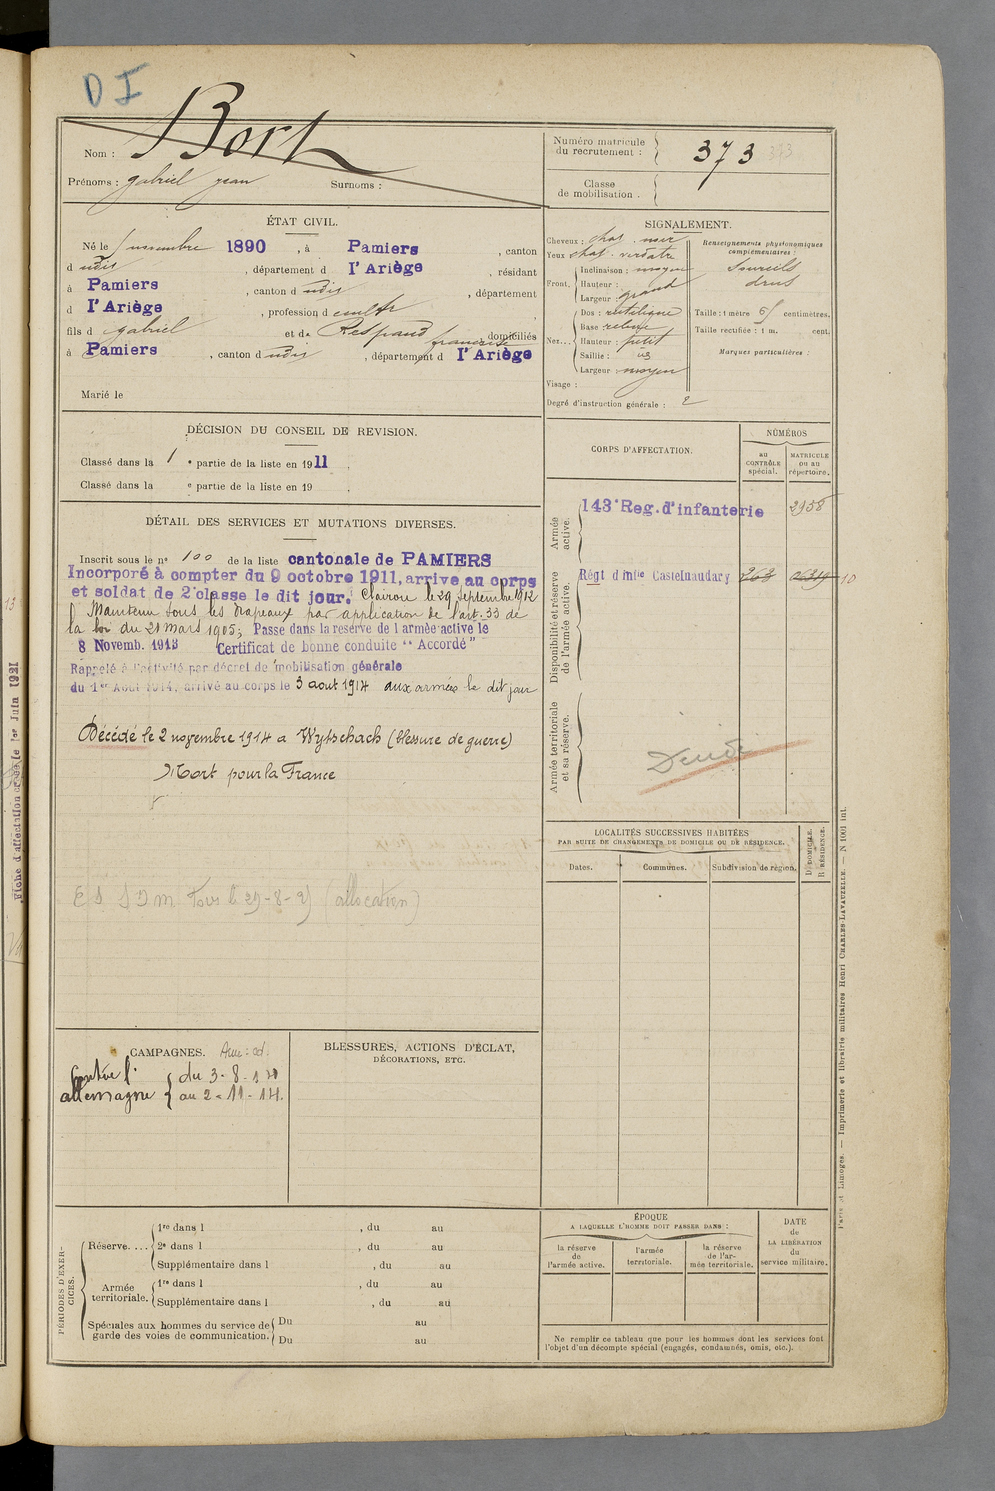 D I
Bort
Nom :
Prénoms : gabriel jean Surnoms :
Numéro matricule du recrutement : 373 373
Classe de mobilisation .
ÉTAT CIVIL.
Né le 1 novembre 1890 , à Pamiers , canton
d udis , département d l'Ariège , résidant
à Pamiers , canton d udis , département
d l'Ariège , profession d cultr
fils d gabriel et d Respaud française domiciliés
à Pamiers , canton d udis , département d l'Ariège
Marié le
SIGNALEMENT.
Cheveux : chat. noir
Yeux chat. verdâtre
Front, Inclinaison : moyen
Hauteur :
Largeur : grand
Nez... Dos : rectiligne
Base : relevée
Hauteur : petit
Saillie :
Largeur : moyen
Visage :
Degré d'instruction générale : 2
Renseignements physionomiques complémentaires :
Sourcils
drus
Taille : 1 mètre 65 centimètres.
Taille rectifiée : 1 m. cent.
Marques particulières :
DÉCISION DU CONSEIL DE REVISION.
Classé dans la 1 e partie de la liste en 1911 .
Classé dans la e partie de la liste en 19 .
DÉTAIL DES SERVICES ET MUTATIONS DIVERSES.
Inscrit sous le no 100 de la liste cantonale de PAMIERS
Incorporé à compter du 9 octobre 1911, arrive au corps
et soldat de 2e classe le dit jour. Clairon le 29 septembre 1912
Maintenu sous les drapeaux par application de l'art. 33 de
la loi du 21 mars 1905; Passe dans la réserve de l'armée active le
8 Novemb. 1913 Certificat de bonne conduite "Accordé"
Rappelé à l'activité par décret de mobilisation générale
du 1er Août 1914, arrivé au corps le 3 aout 1914 aux armées le dit jour
Décédé le 2 novembre 1914 a Wytschach (blessure de guerre)
Mort pour la France
(allocation)
CORPS D'AFFECTATION.
NUMÉROS
au CONTRÔLE spécial.
MATRICULE ou au répertoire.
Armée active.
143e Reg. d'infanterie 2958
Disponibilité et réserve de l'armée active.
Régt d'Infie Castelnaudary 263 06319 10
Armée territoriale et sa réserve.
Décédé
LOCALITÉS SUCCESSIVES HABITÉES
PAR SUITE DE CHANGEMENTS DE DOMICILE OU DE RÉSIDENCE.
Dates. Communes. Subdivision de région.
D. DOMICILE.
R. RÉSIDENCE.
CAMPAGNES.
Contre l'allemagne { du 3-8-14
au 2-11-14.
BLESSURES, ACTIONS D'ÉCLAT,
DÉCORATIONS, ETC.
PÉRIODES D'EXERCICES.
Réserve.... 1re dans l , du au
2e dans l , du au
Supplémentaire dans l , du au
Armée territoriale. 1re dans l , du au
Supplémentaire dans l , du au
Spéciales aux hommes du service de garde des voies de communication. Du au
Du au
ÉPOQUE
A LAQUELLE L'HOMME DOIT PASSER DANS :
la réserve de l'armée active.
l'armée territoriale.
la réserve de l'armée territoriale.
DATE de LA LIBÉRATION du service militaire.
Ne remplir ce tableau que pour les hommes dont les services font
l'objet d'un décompte spécial (engagés, condamnés, omis, etc.).
Paris et Limoges. — Imprimerie et librairie militaires Henri CHARLES-LAVAUZELLE. — N 1001 int.